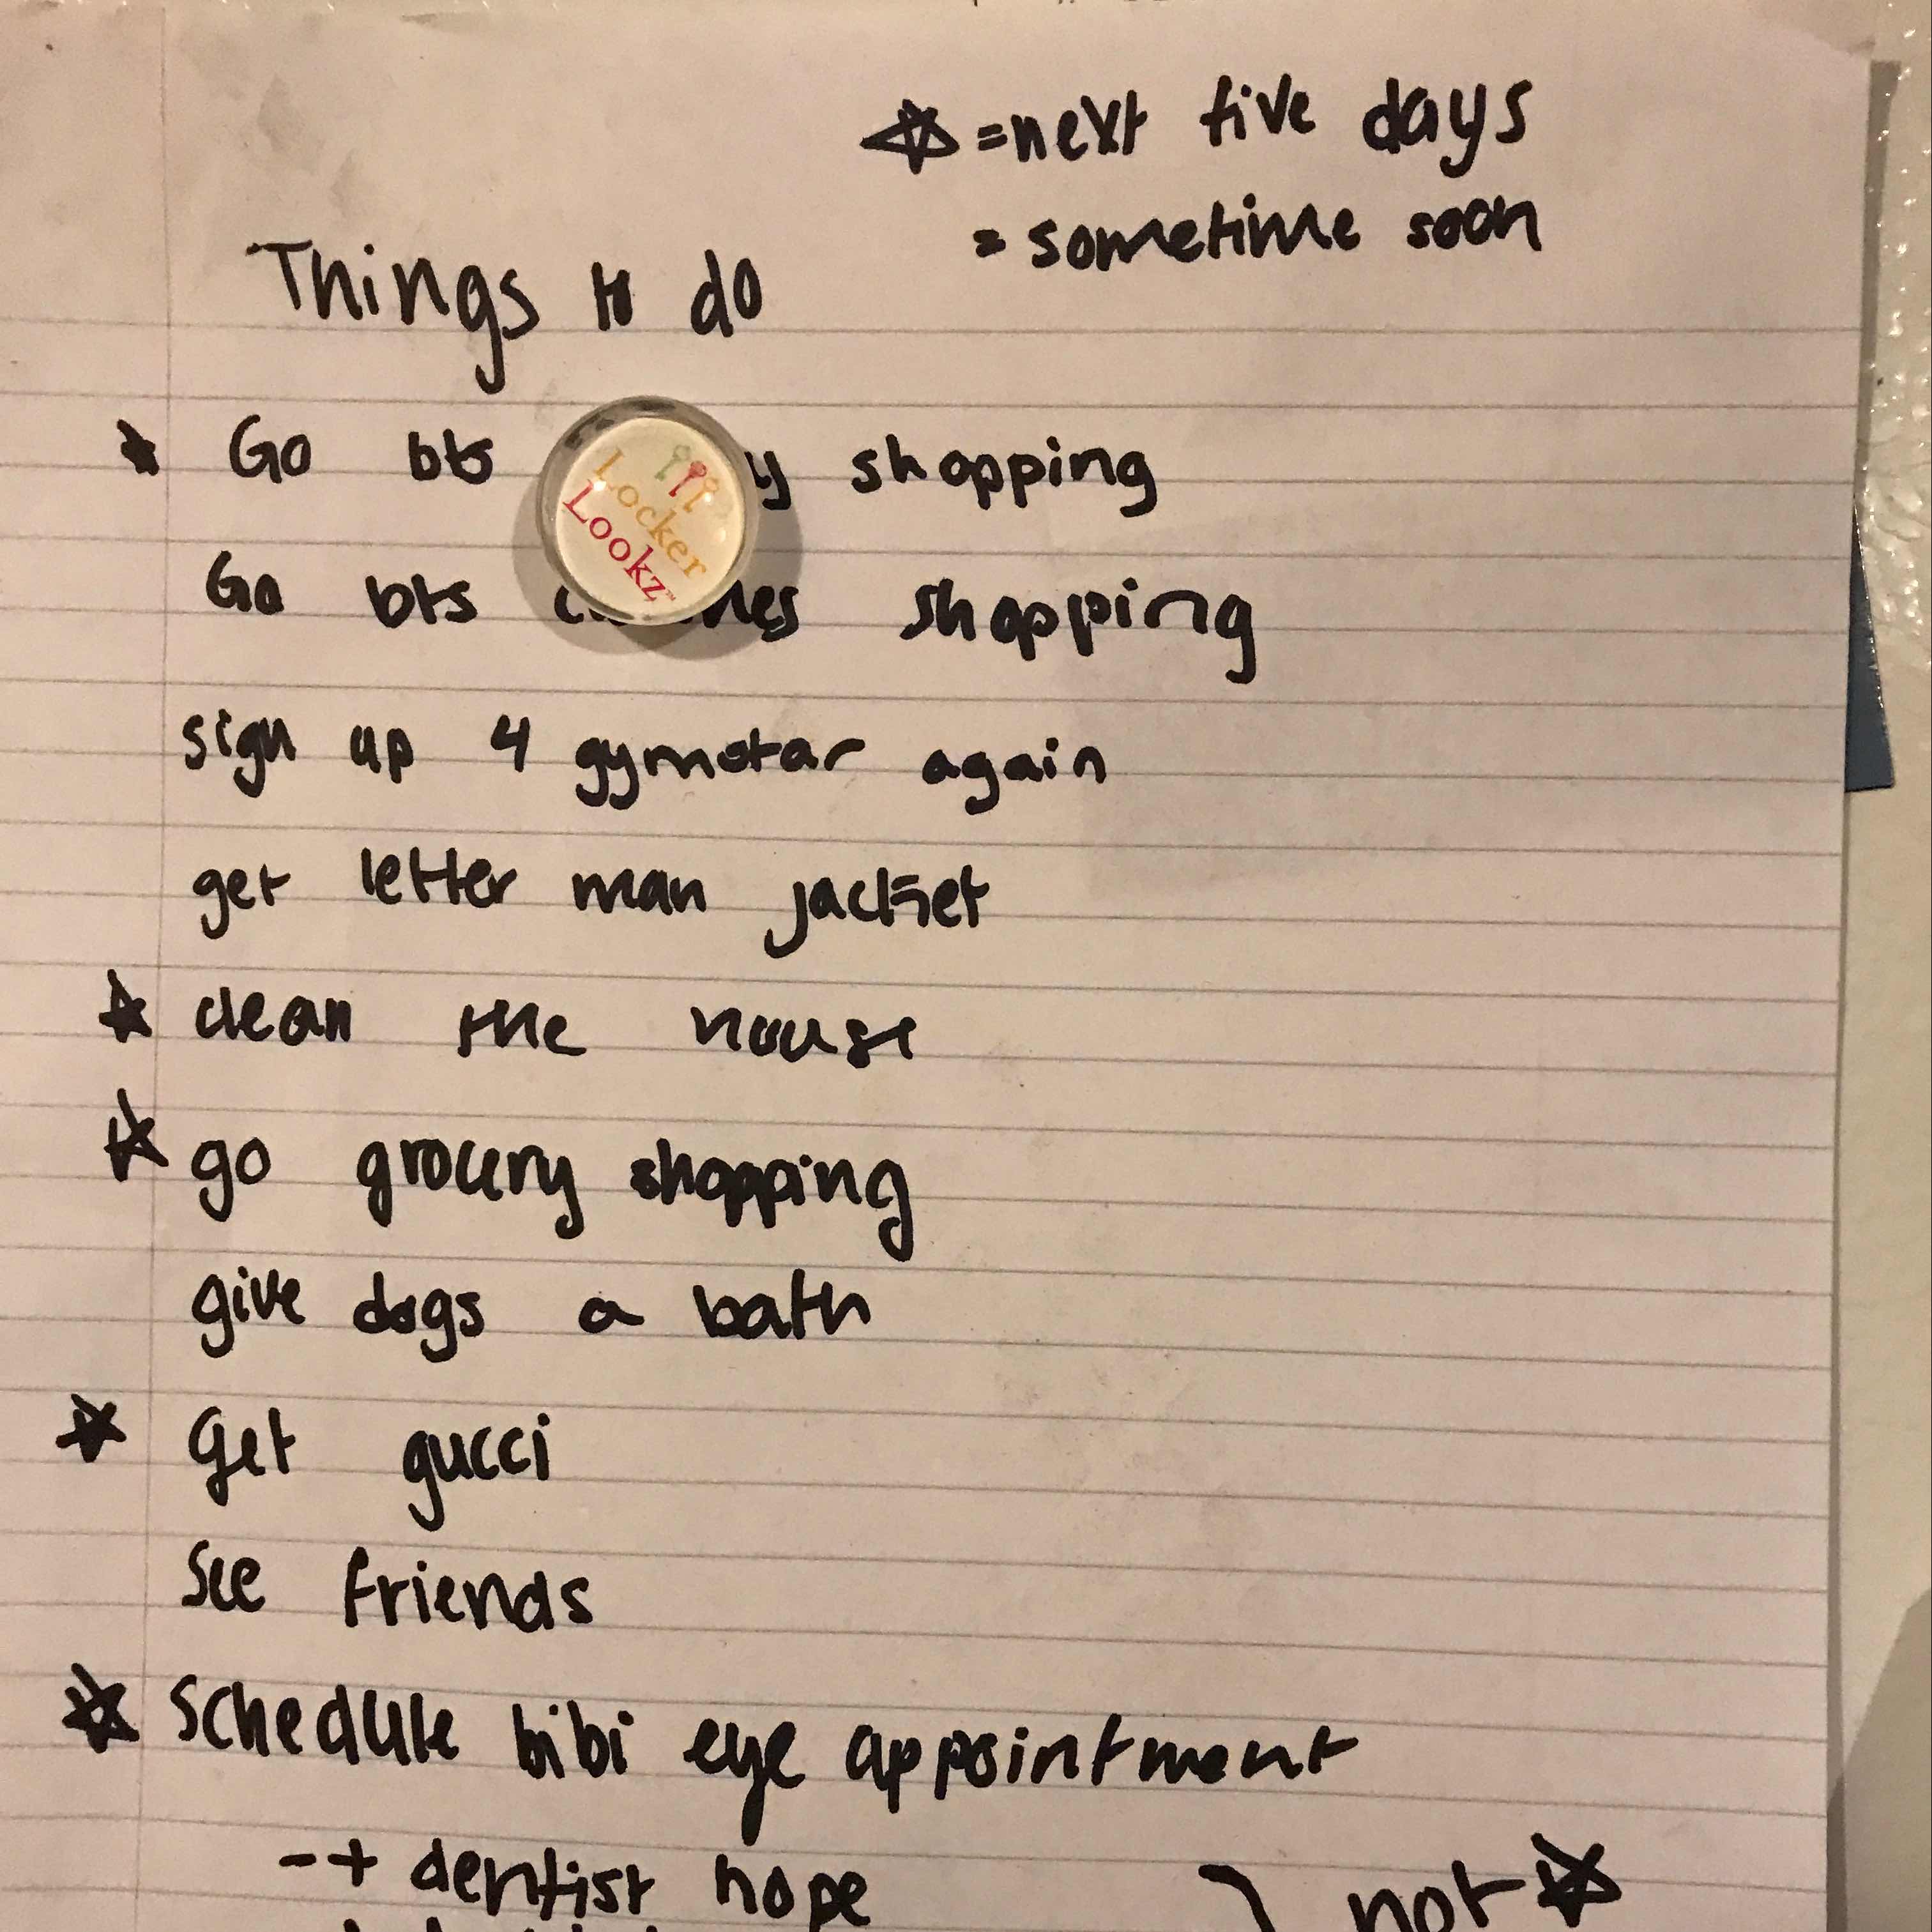 ☆ = next five days
= sometime soon
Things to do
★ Go bts shopping
Locker
Lookz™
Go bts shopping
sign up 4 gymstar again
get letter man jacket
☆ clean the house
☆ go grocery shopping
give dogs a bath
☆ Get gucci
See friends
☆ Schedule bibi eye appointment
-+ dentist nope
) not ☆